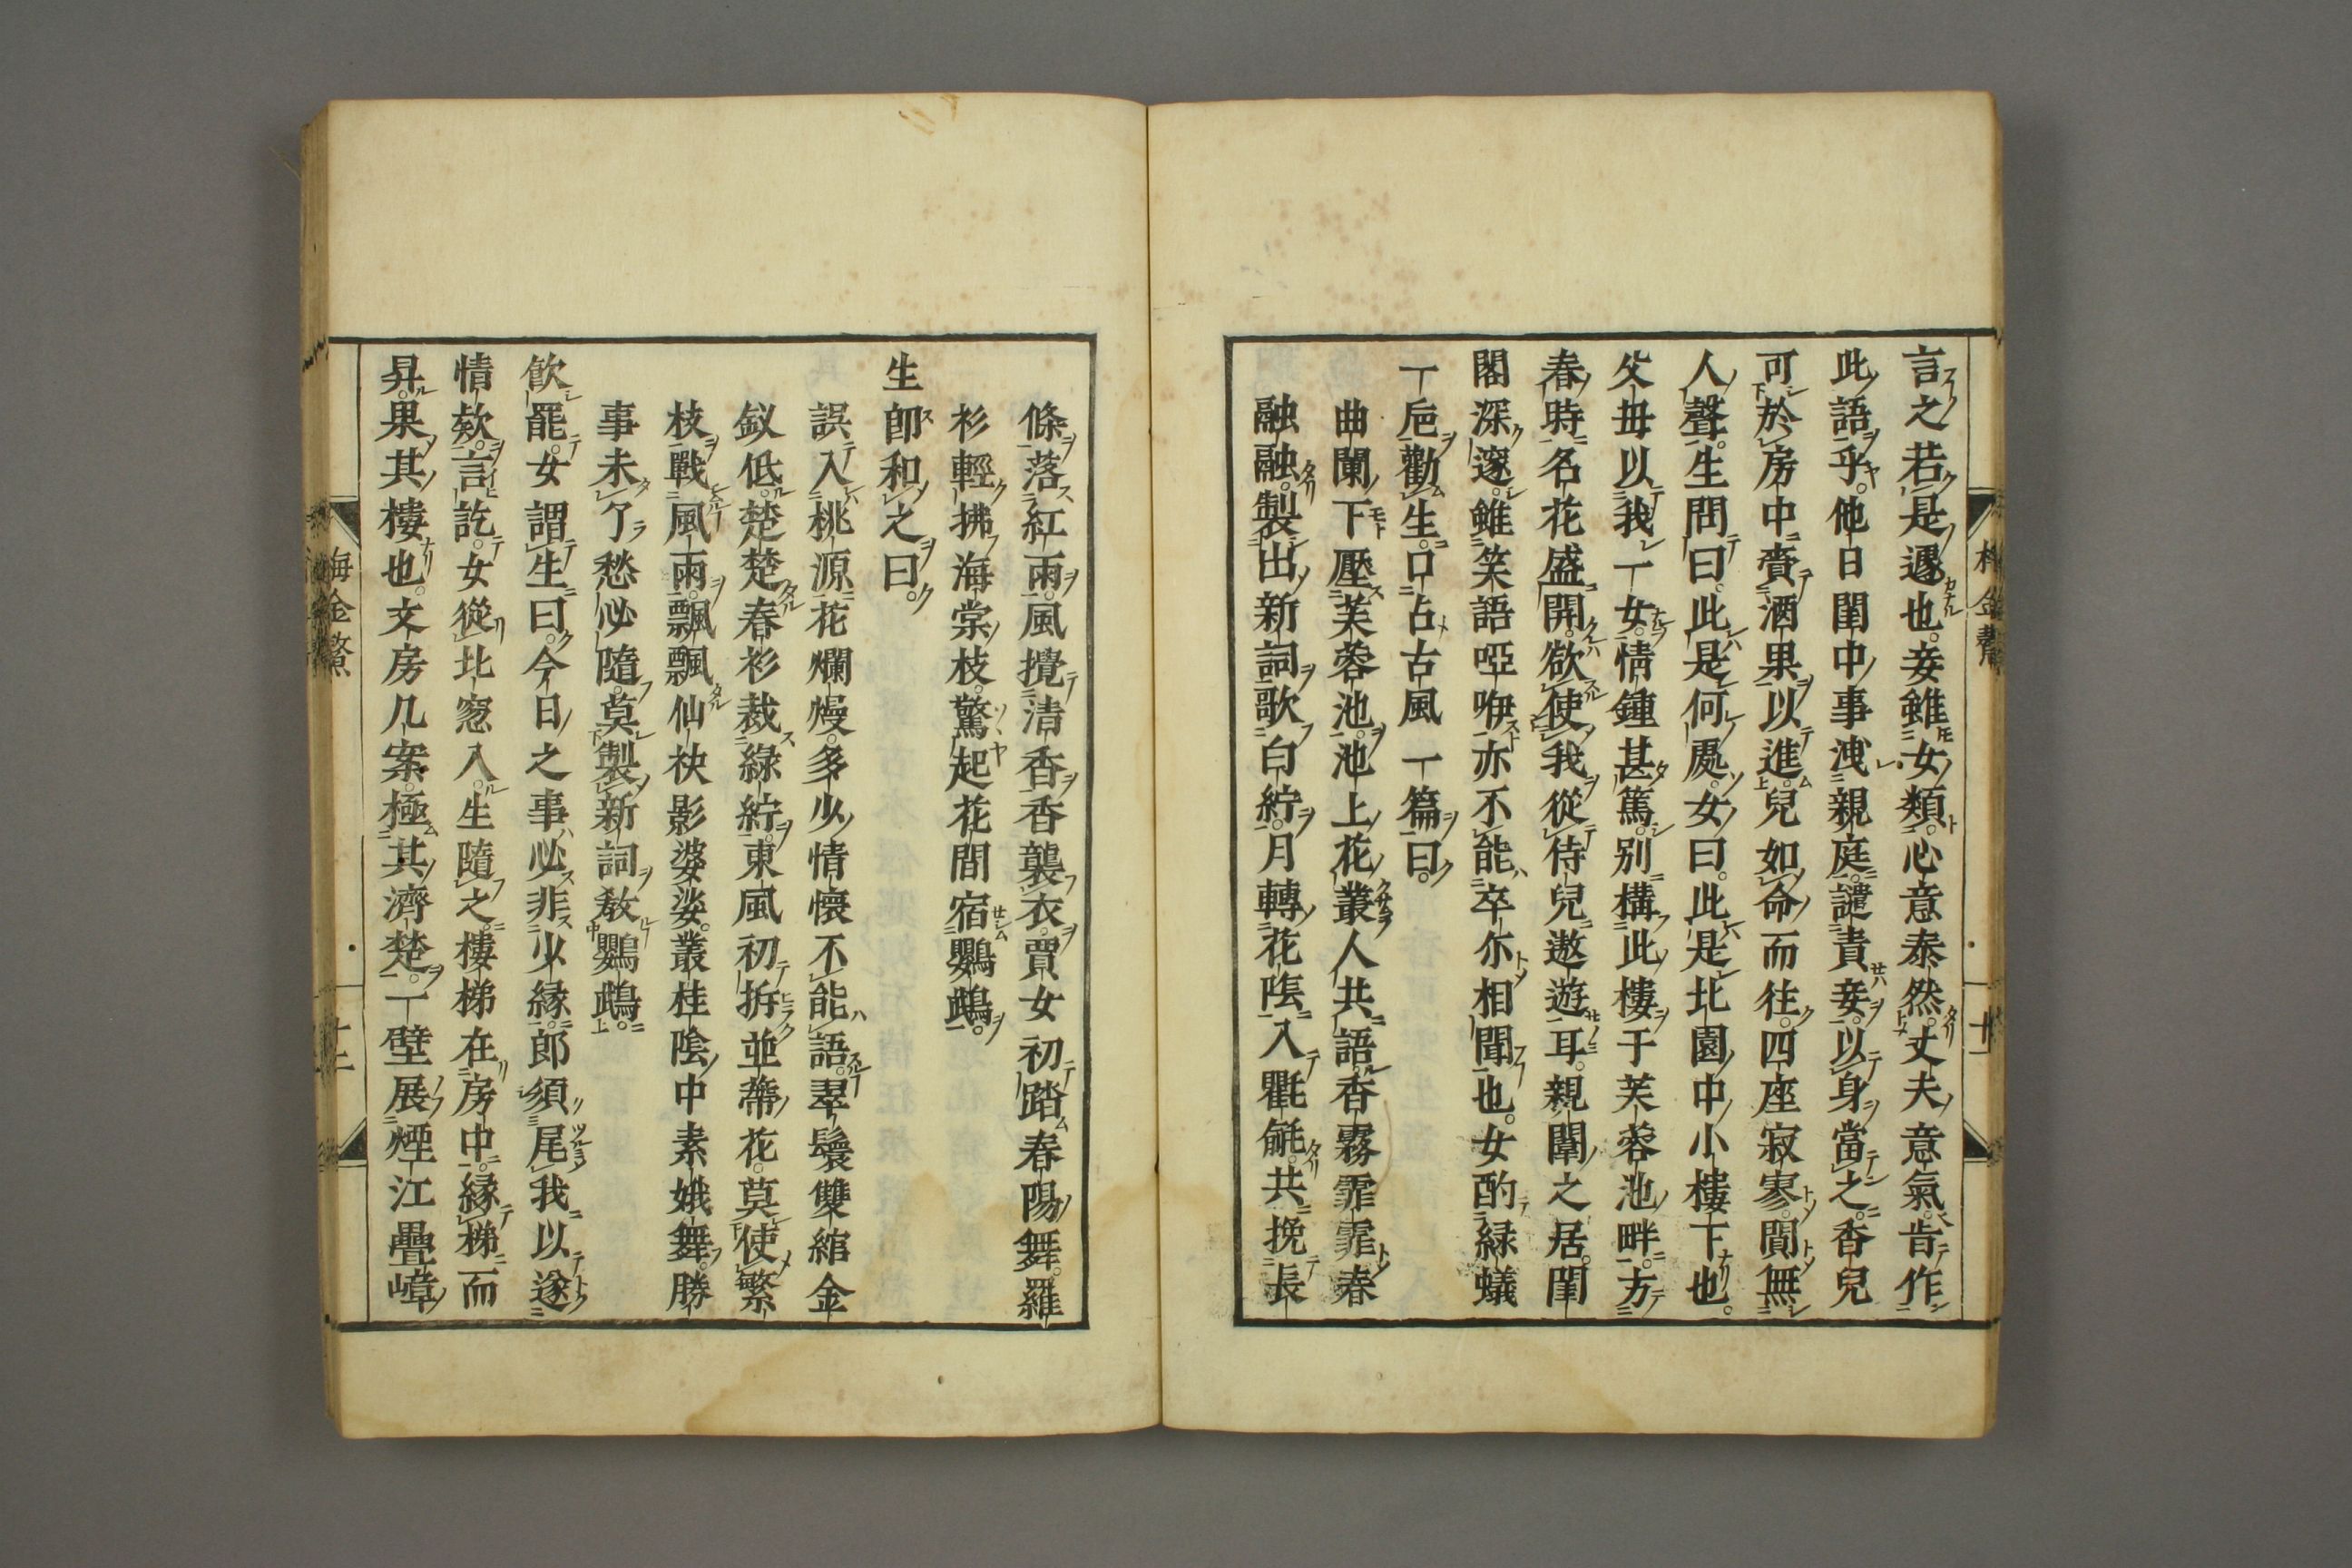 言之若是遽也妾雖女類心意泰然丈夫意氣肯作
此語乎他日閨中事洩親庭譴責妾以身當之香兒
可於房中賷酒果以進兒如命而徃四座寂寥闃無
人聲生問曰此是何處女曰此是北園中小樓下也
父毋以我一女情鍾甚篤别構此樓于芙蓉池畔方
春時名花盛開欲使我從侍兒遨遊耳親闈之居閨
閣深邃雖笑語啞咿亦不能卒尓相聞也女酌緑蟻
一巵勸生口占古風一篇曰
曲闌下壓芙蓉池池上花叢人共語香霧霏霏春
融融製出新詞歌白紵月轉花陰入氍毹共挽長
條落紅雨風攪清香香襲衣賈女初踏春陽舞羅
衫輕拂海棠枝驚起花間宿鸚鵡
生卽和之曰
誤入桃源花爛熳多少情懷不能語翠鬟雙綰金
釵低楚楚春衫裁緑紵東風初拆並蔕花莫使繁
枝戰風雨飄飄仙袂影婆娑叢桂陰中素娥舞勝
事未了愁必隨莫製新詞敎鸚鵡
飲罷女謂生曰今日之事必非少緣郎須尾我以遂
情欵言訖女從北窓入生隨之樓梯在房中緣梯而
昇果其樓也文房几案極其濟楚一壁展煙江疊嶂
梅金鰲
十二